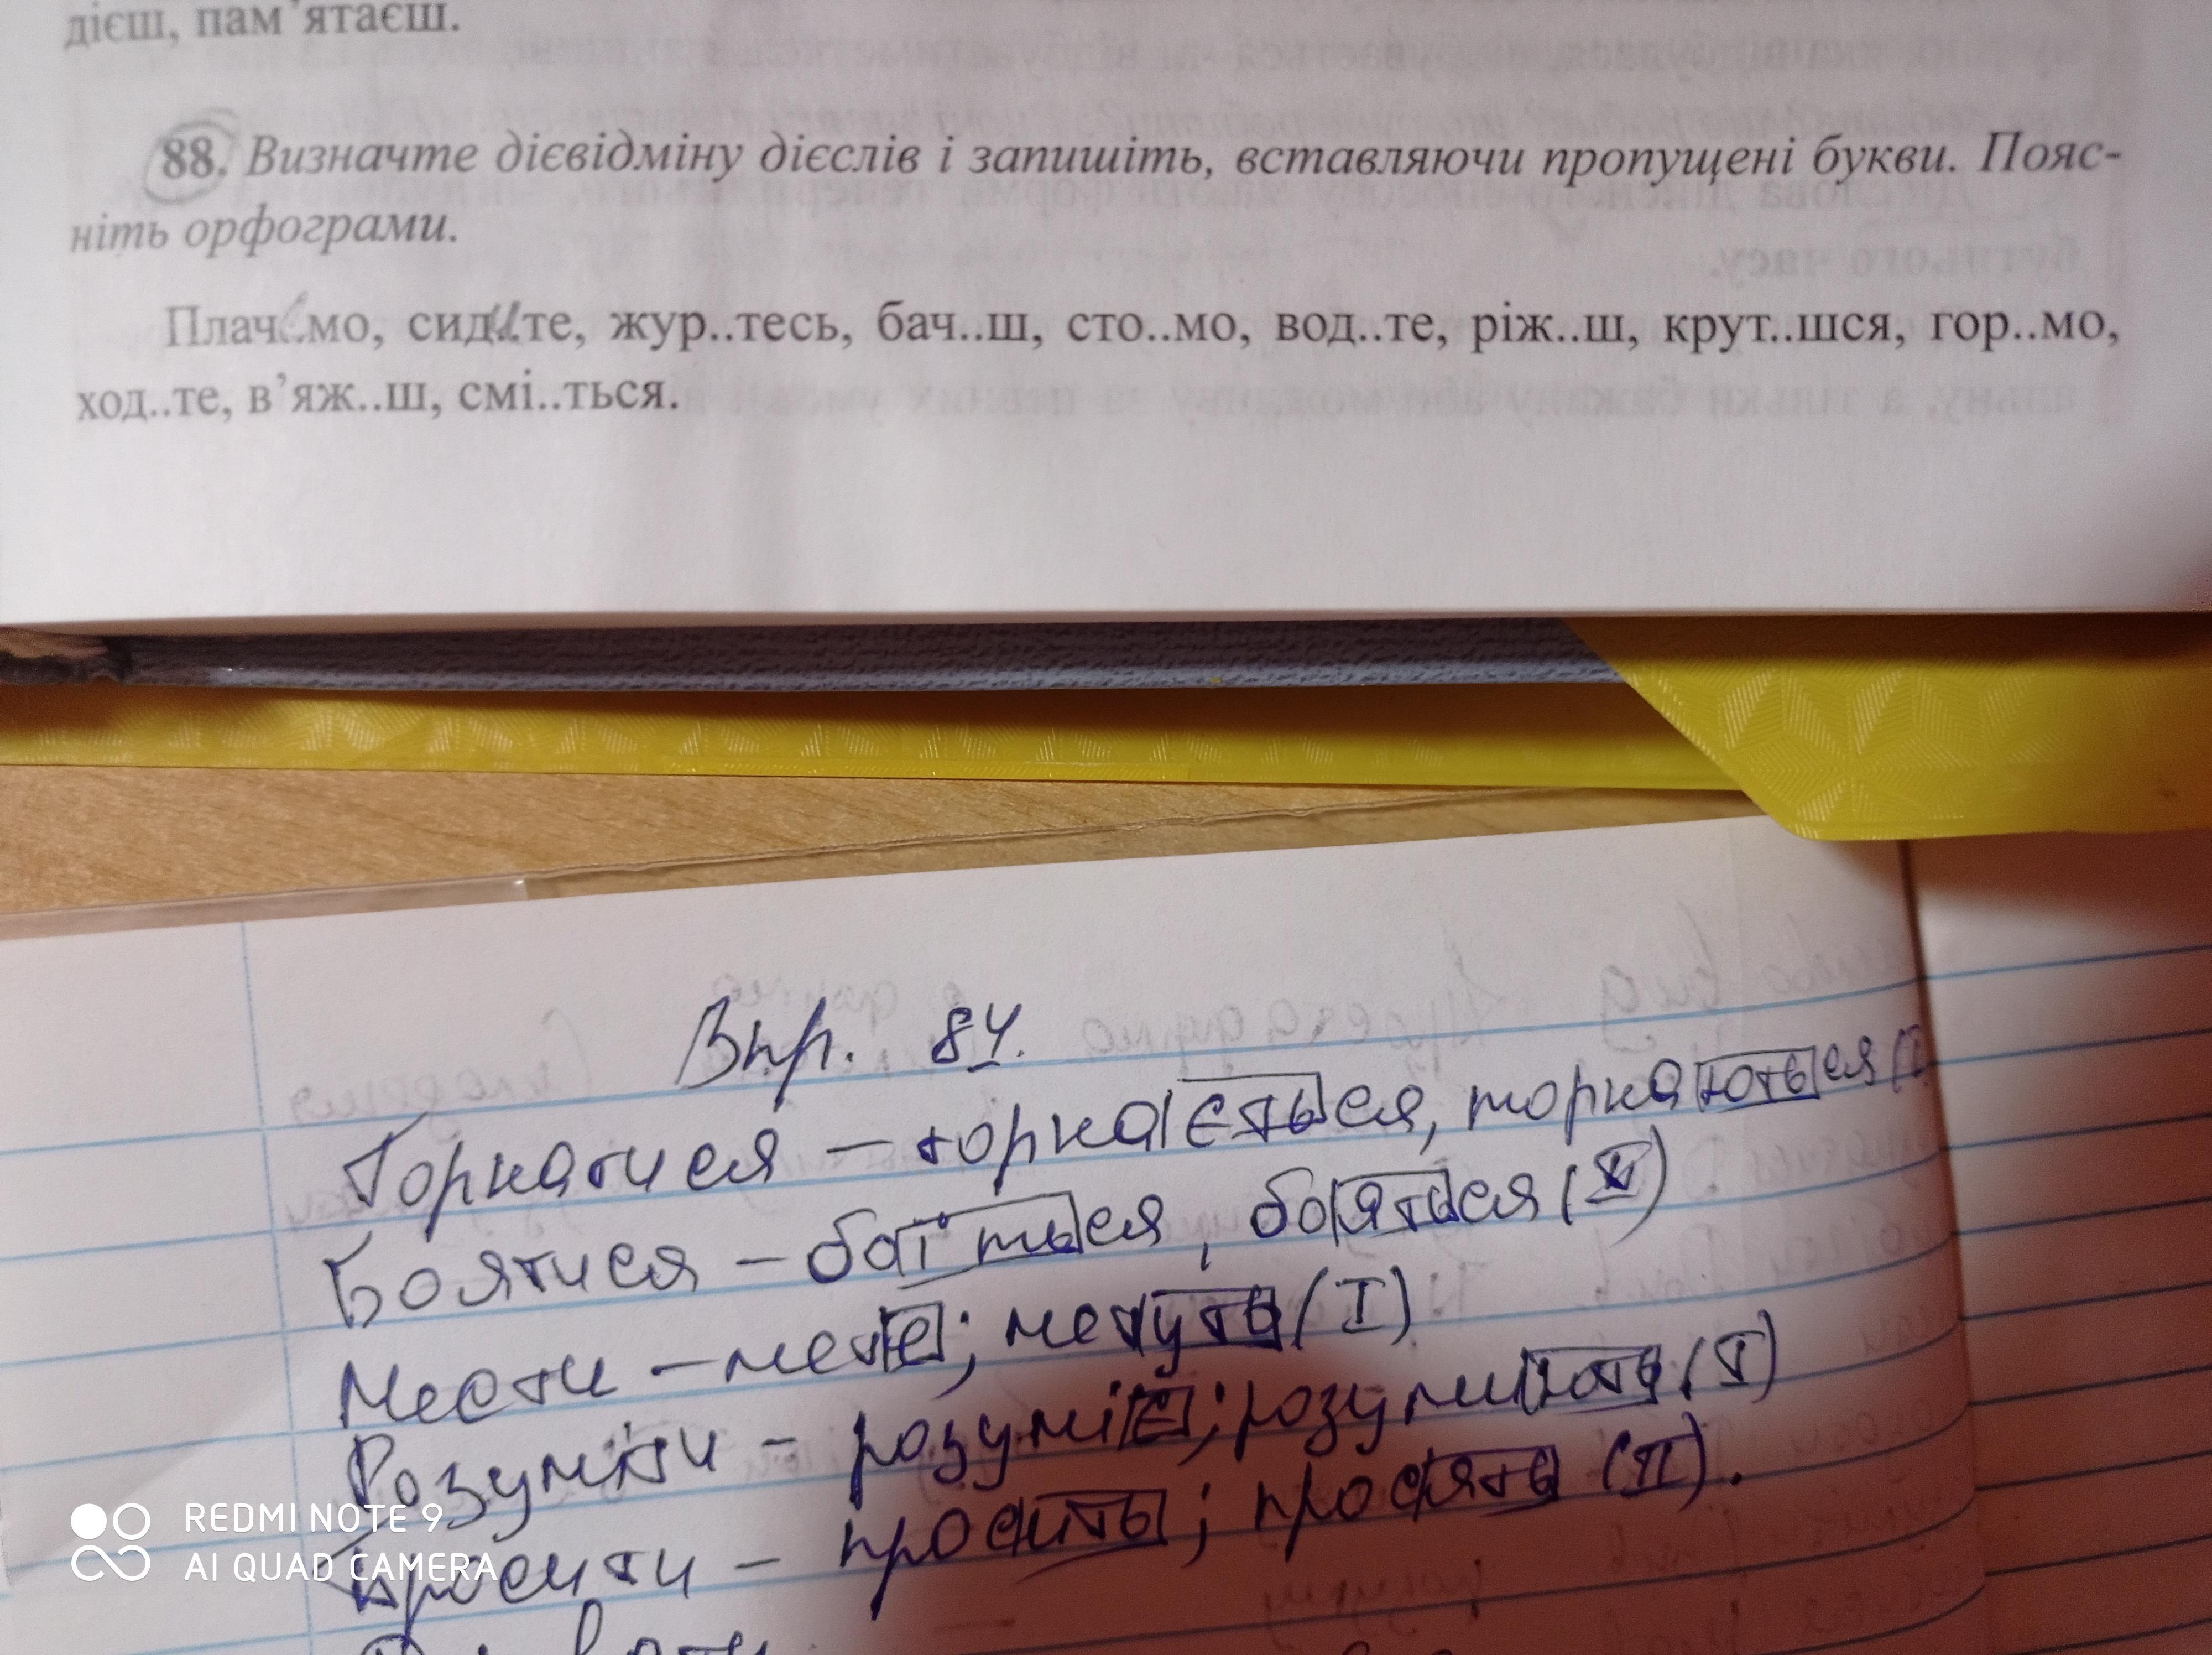 дієш, пам'ятаєш.
88. Визначте дієвідміну дієслів і запишіть, вставляючи пропущені букви. Пояс-
ніть орфограми.
Плачемо, сидите, жур..тесь, бач..ш, сто..мо, вод..те, ріж..ш, крут..шся, гор..мо,
ход..те, в'яж..ш, смі..ться.
Впр. 84.
Торкатися – торкається, торкаються (І
Боятися – боїться, бояться (ІІ)
Мести – мете; метуть (І)
Розуміти – розуміє; розумиють (І)
Просити – просить; просять (ІІ).
REDMI NOTE 9
AI QUAD CAMERA